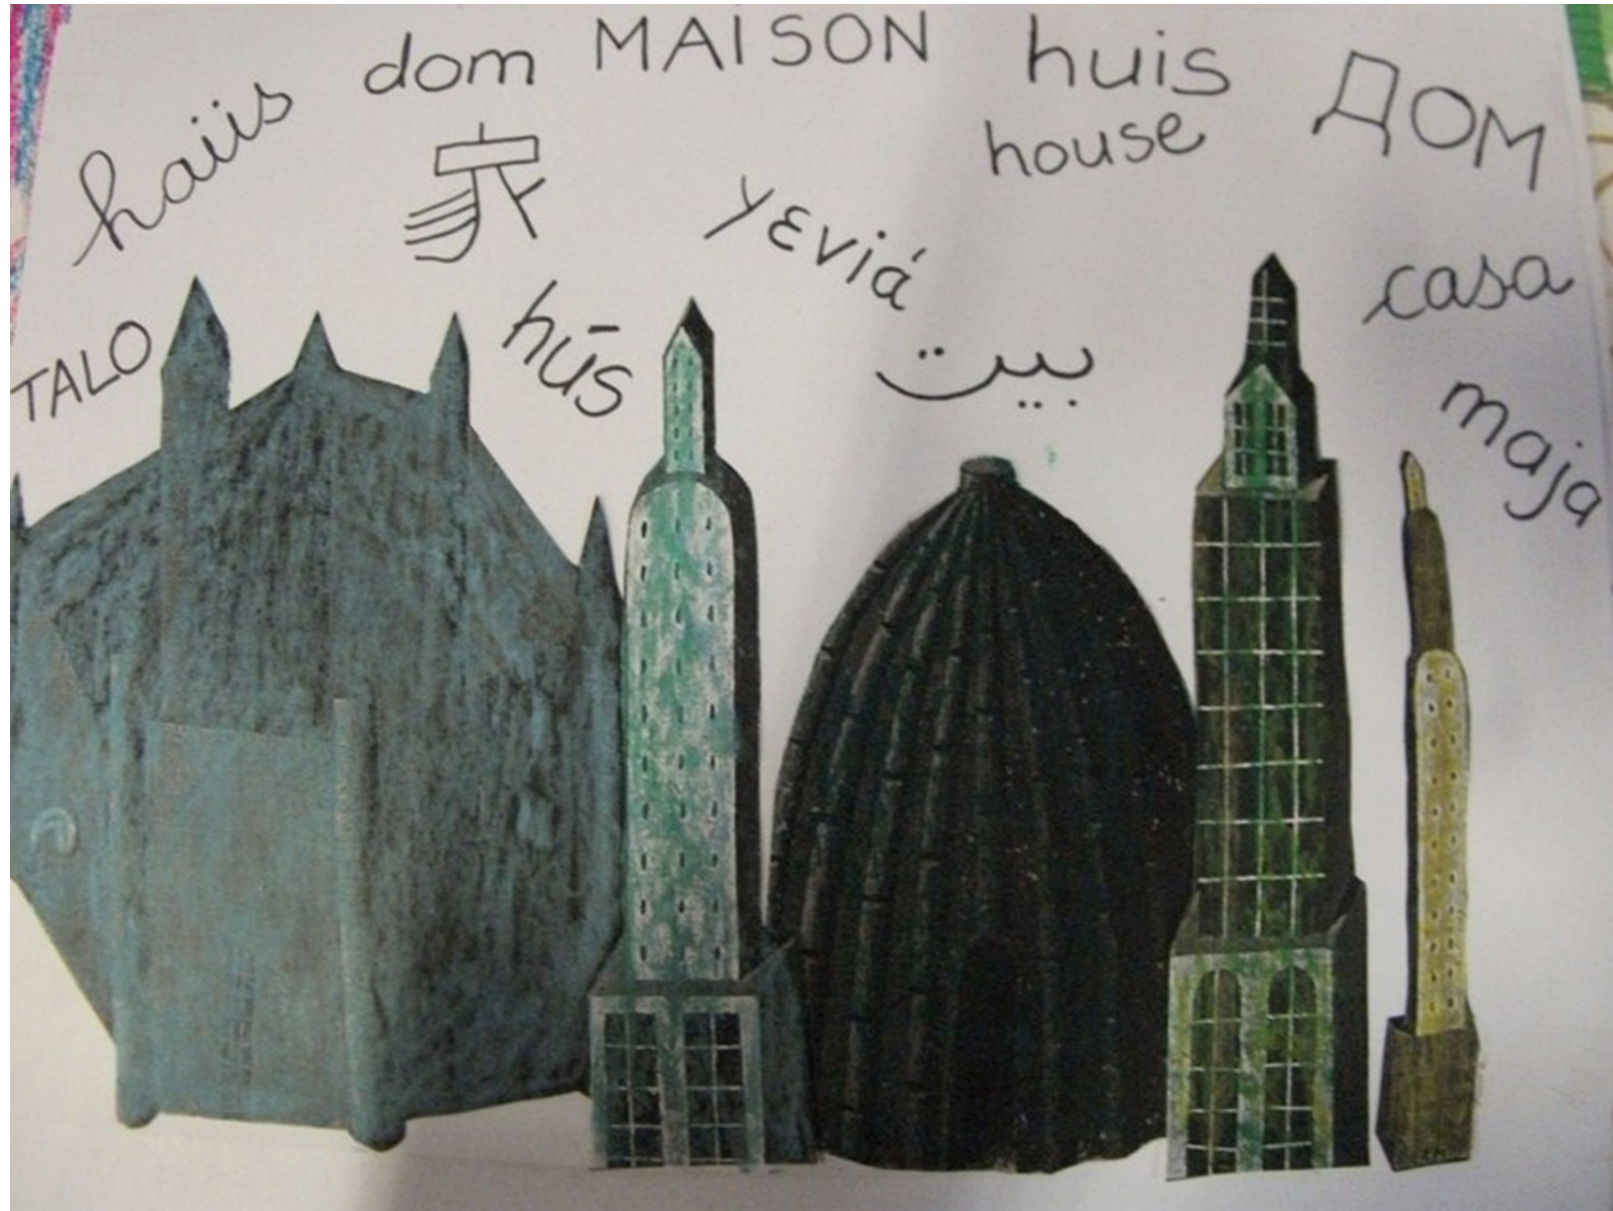 haüs
dom
MAISON
huis
ДОМ
house
家
γενιά
casa
TALO
hús
بيت
maja